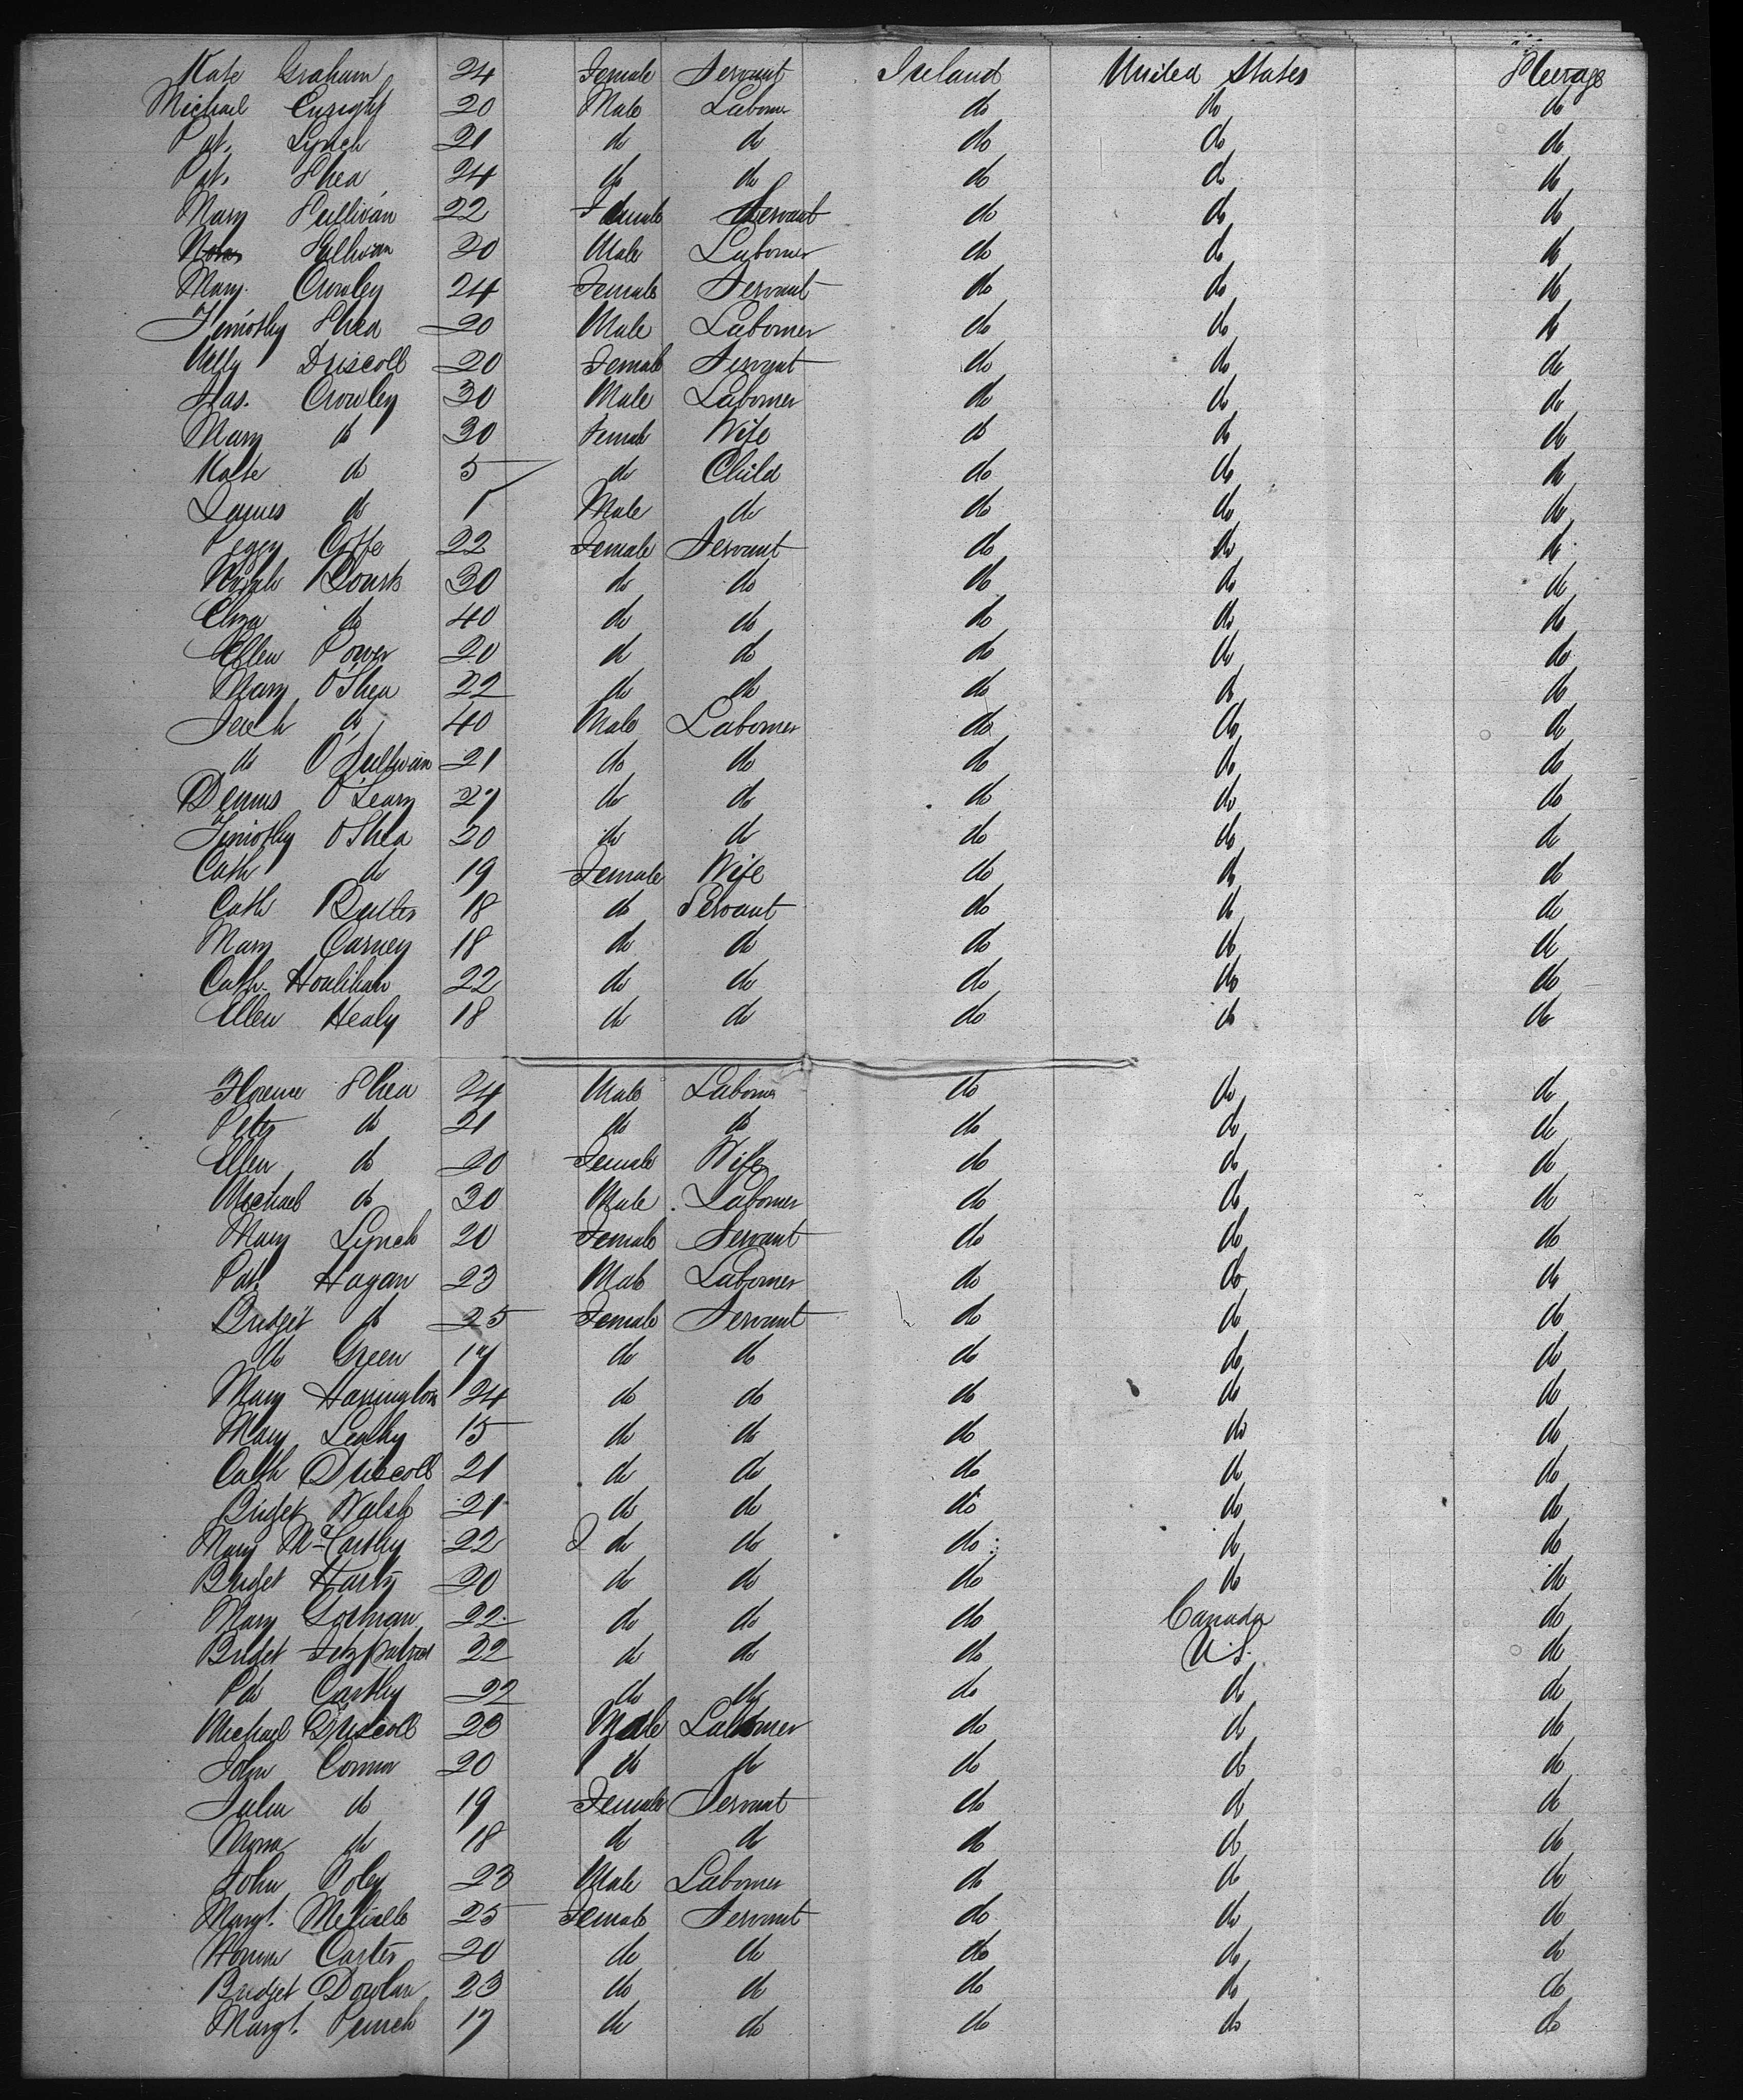 Kate Graham 24 Female Servant Ireland United States Steerage
Michael Enright 20 Male Laborer do do do
Pat. Lynch 21 do do do do do
Pat. Shea 24 do do do do do
Mary Sullivan 22 Female Servant do do do
Sullivan 20 Male Laborer do do do
Mary Crowley 24 Female Servant do do do
Timothy Shea 20 Male Laborer do do do
Nelly Driscoll 20 Female Servant do do do
Jas. Crowley 30 Male Laborer do do do
Mary do 30 Female Wife do do do
Kate do 5 do Child do do do
James do 1 Male do do do do
Peggy Coffe 22 Female Servant do do do
Bourk 30 do do do do do
Eliza do 40 do do do do do
Ellen Power 20 do do do do do
Mary O'Shea 22 do do do do do
do 40 Male Laborer do do do
do O'Sullivan 21 do do do do do
Dennis O'Leary 27 do do do do do
Timothy O'Shea 20 do do do do do
Cath do 19 Female Wife do do do
Cath Butler 18 do Servant do do do
Mary Carney 18 do do do do do
Cath. Houlihan 22 do do do do do
Ellen Healy 18 do do do do do
Florence Shea 24 Male Laborer do do do
Peter do 21 do do do do do
Ellen do 20 Female Wife do do do
Michael do 30 Male Laborer do do do
Mary Lynch 20 Female Servant do do do
Pat. Hagan 23 Male Laborer do do do
Bridget do 25 Female Servant do do do
do Green 17 do do do do do
Mary Harrington 24 do do do do do
Mary Leahy 15 do do do do do
Cath Driscoll 21 do do do do do
Bridget Walsh 21 do do do do do
Mary McCarthy 22 do do do do do
Bridget Harty 20 do do do do do
Mary Gorman 22 do do do Canada do
Bridget Fitzpatrick 22 do do do U.S. do
Carthy 22 do do do do do
Michael Driscoll 23 Male Laborer do do do
John Connor 20 do do do do do
Julia do 19 Female Servant do do do
do 18 do do do do do
John Foley 23 Male Laborer do do do
Margt. 25 Female Servant do do do
Carter 20 do do do do do
Bridget Dowlan 23 do do do do do
Margt. 17 do do do do do